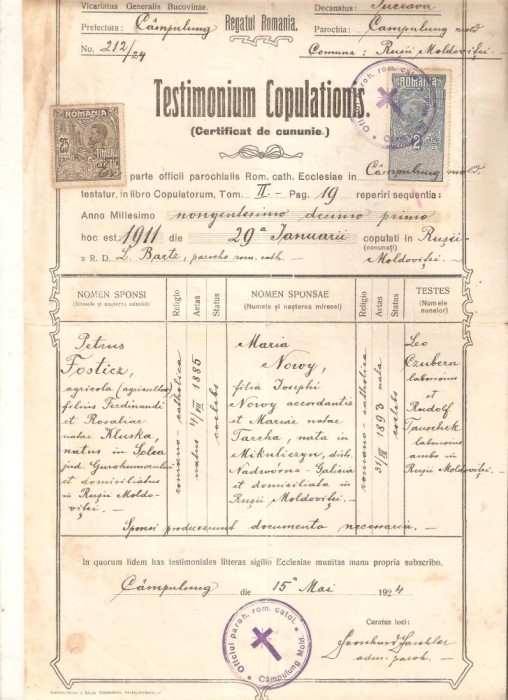 Vicariatus Generalis Bucovinae.
Decanatus: Suceava
Prefectura: Câmpulung
Regatul Romania.
Parochia: Campulung mold
No. 212/24
Comuna: Rusii Moldoviței.
Testimonium Copulationis.
(Certificat de cununie.)
ROMANIA
25
ROMANIA
2
Oficiul paroh. rom. catol.
parte officii parochialis Rom. cath. Ecclesiae in Câmpulung mold.
testatur, in libro Copulatorum, Tom. II. – Pag. 19 reperiri sequentia:
Anno Millesimo nongentesimo decimo primo
hoc est 1911 die 29ª Januarii copulati in Rușii-
(cununați)
a R. D. Bartz, parocho rom. cath. Moldoviței.
NOMEN SPONSI
(Numele și nașterea mirelui)
Religio
Aetas
Status
NOMEN SPONSAE
(Numele și nașterea miresei)
Religio
Aetas
Status
TESTES
(Numele
nunilor)
Petrus
Fosticz,
agricola (agricultor)
filius Ferdinandi
et Rosaliae
natae Kluska,
natus in Solca
jud. Gurahumorului
et domiciliatus
in Rușii Moldo-
viței. –
romano-catholica
natus 4/VII 1885
coelebs
Maria
Nowy,
filia Josephi
Nowy accordantis
et Mariae natae
Tarcha, nata in
Mikuliczyn, distr.
Nadwórna-Galicia
et domiciliata in
Rușii Moldoviței. –
romano-catholica
31/III 1893 nata
coelebs
Leo
Czubera
laborious
et
Rudolf
Tauschek
laborious
ambo in
Rușii Moldoviței. –
Sponsi produxerunt documenta necessaria. –
In quorum fidem has testimoniales litteras sigillo Ecclesiae munitas manu propria subscribo.
Câmpulung die 15ª Mai 1924
Curatus loci:
adm. paroh.
Oficiul paroh. rom. catol.
Câmpulung Mold.